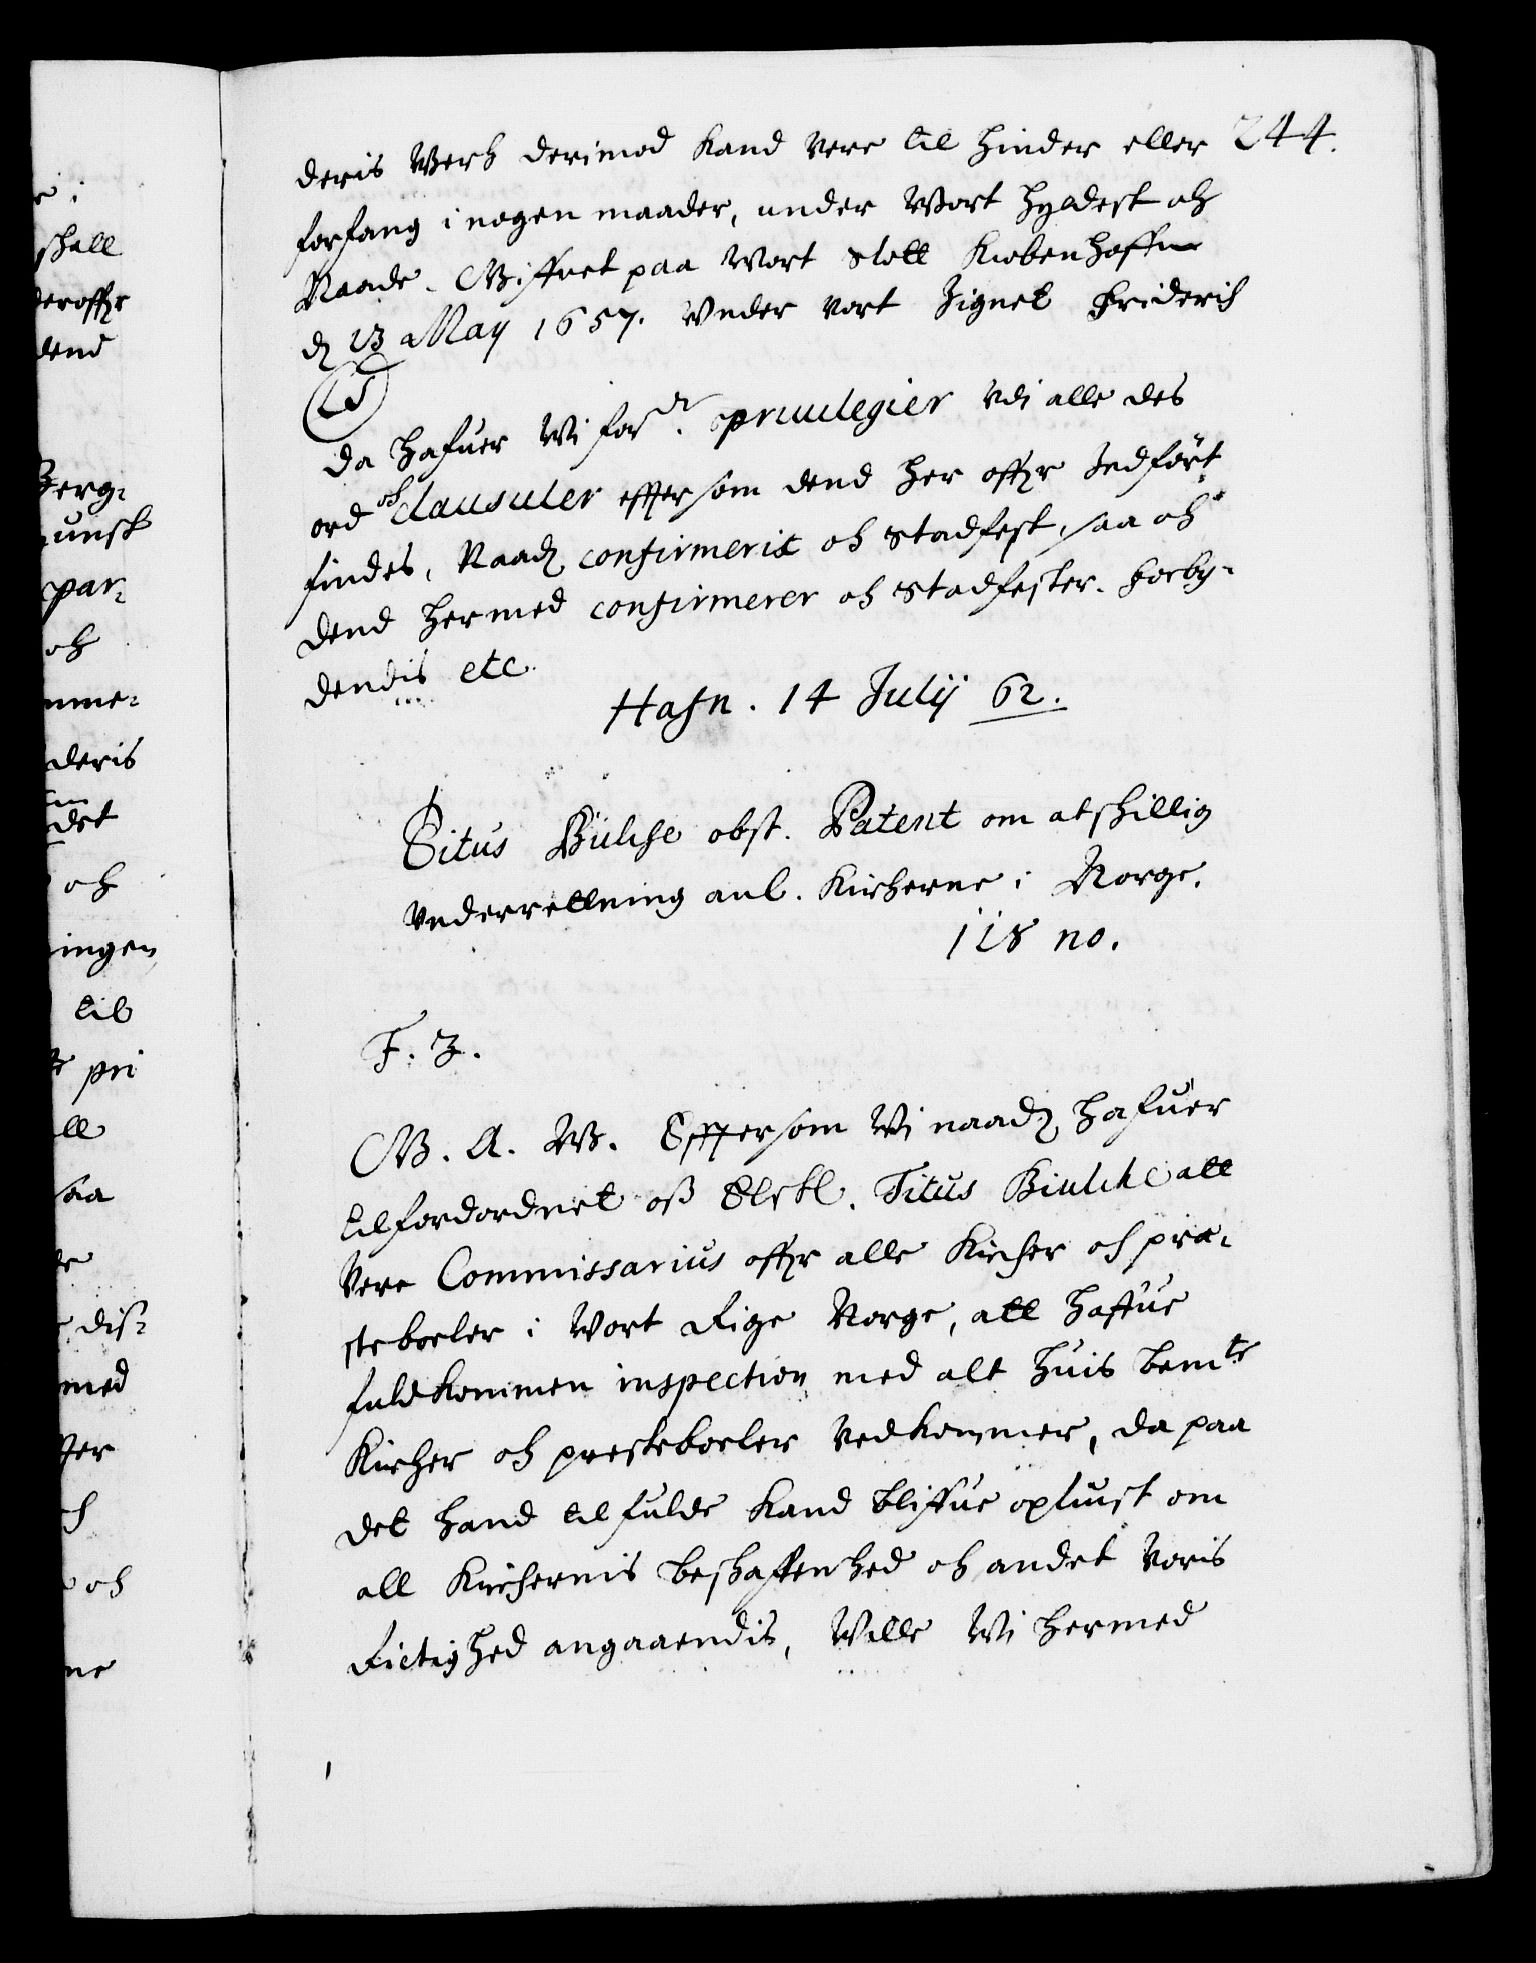 244.
deris Werk derimod kand vere til hinder eller
forfang i nogen maader, under Wort hyldest och
Naade. Giffuet paa Wort Slott Kiøbenhaffn
d 13 May 1657. Vnder vort Zignet Friderich
LS
da hafuer Wi forn. privilegier vdi alle des
ord och clausuler effersom dend her offr Indført
findes, Naadt confirmerit och Stadfest, saa och
dend hermed confirmerer och Stadfester. Forby-
dendis etc.
Hafn. 14 Julij 62.
Titus Bülche obst. Patent om atskillig
vnderrettning anl. Kircherne i Norge.
118 no.
F. 3.
G. A. W. Effersom Wi naadt hafuer
tilforordnet oss Elskl. Titus Biulche att
vere Commissarius offr alle Kircher och præ-
steboeler i Wort Rige Norge, att haffue
fuldkommen inspection med alt huis bemte
Kircher och presteboeler vedkommer, da paa
det hand til fulde kand bliffue opliust om
all Kirchernis beskaffenhed och andet voris
Rictighed angaaendis, Wille Wi hermed
shall
deroffr
dend
Berg-
par-
och
mme-
deris
det
och
ingen
til
pri
saa
dis-
med
och